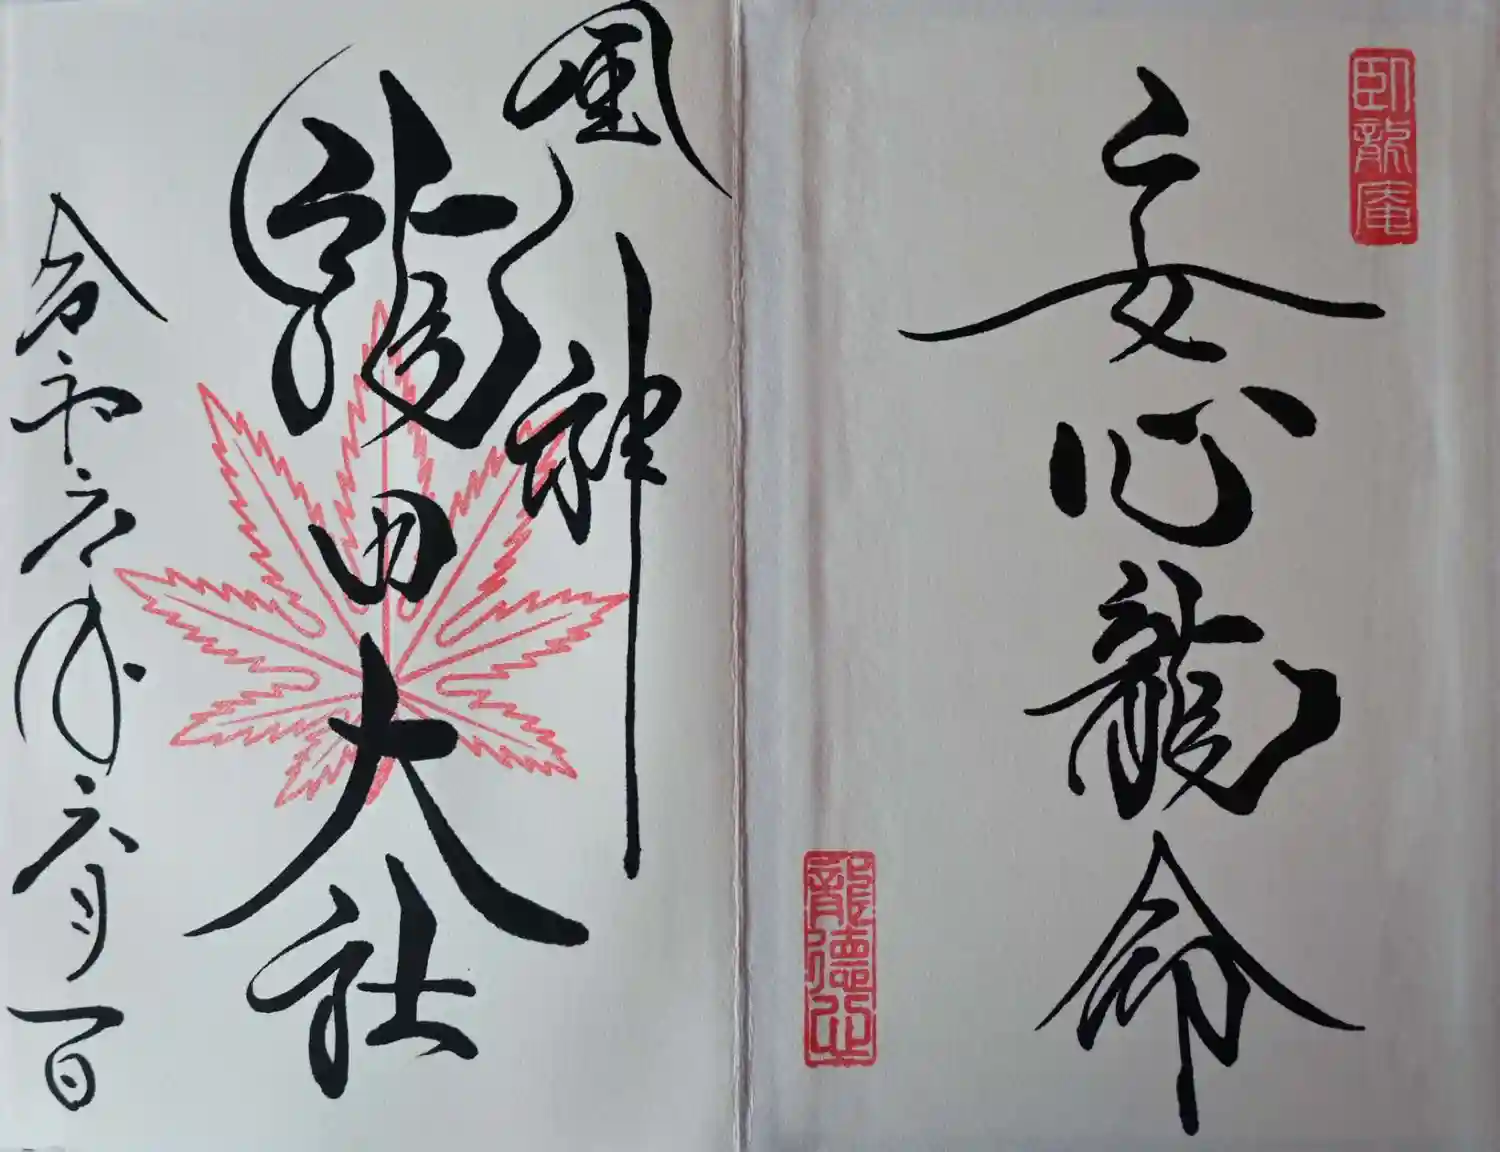 臥龍庵
安心龍命
龍徳
風神
龍田大社
令和六歳六月一日